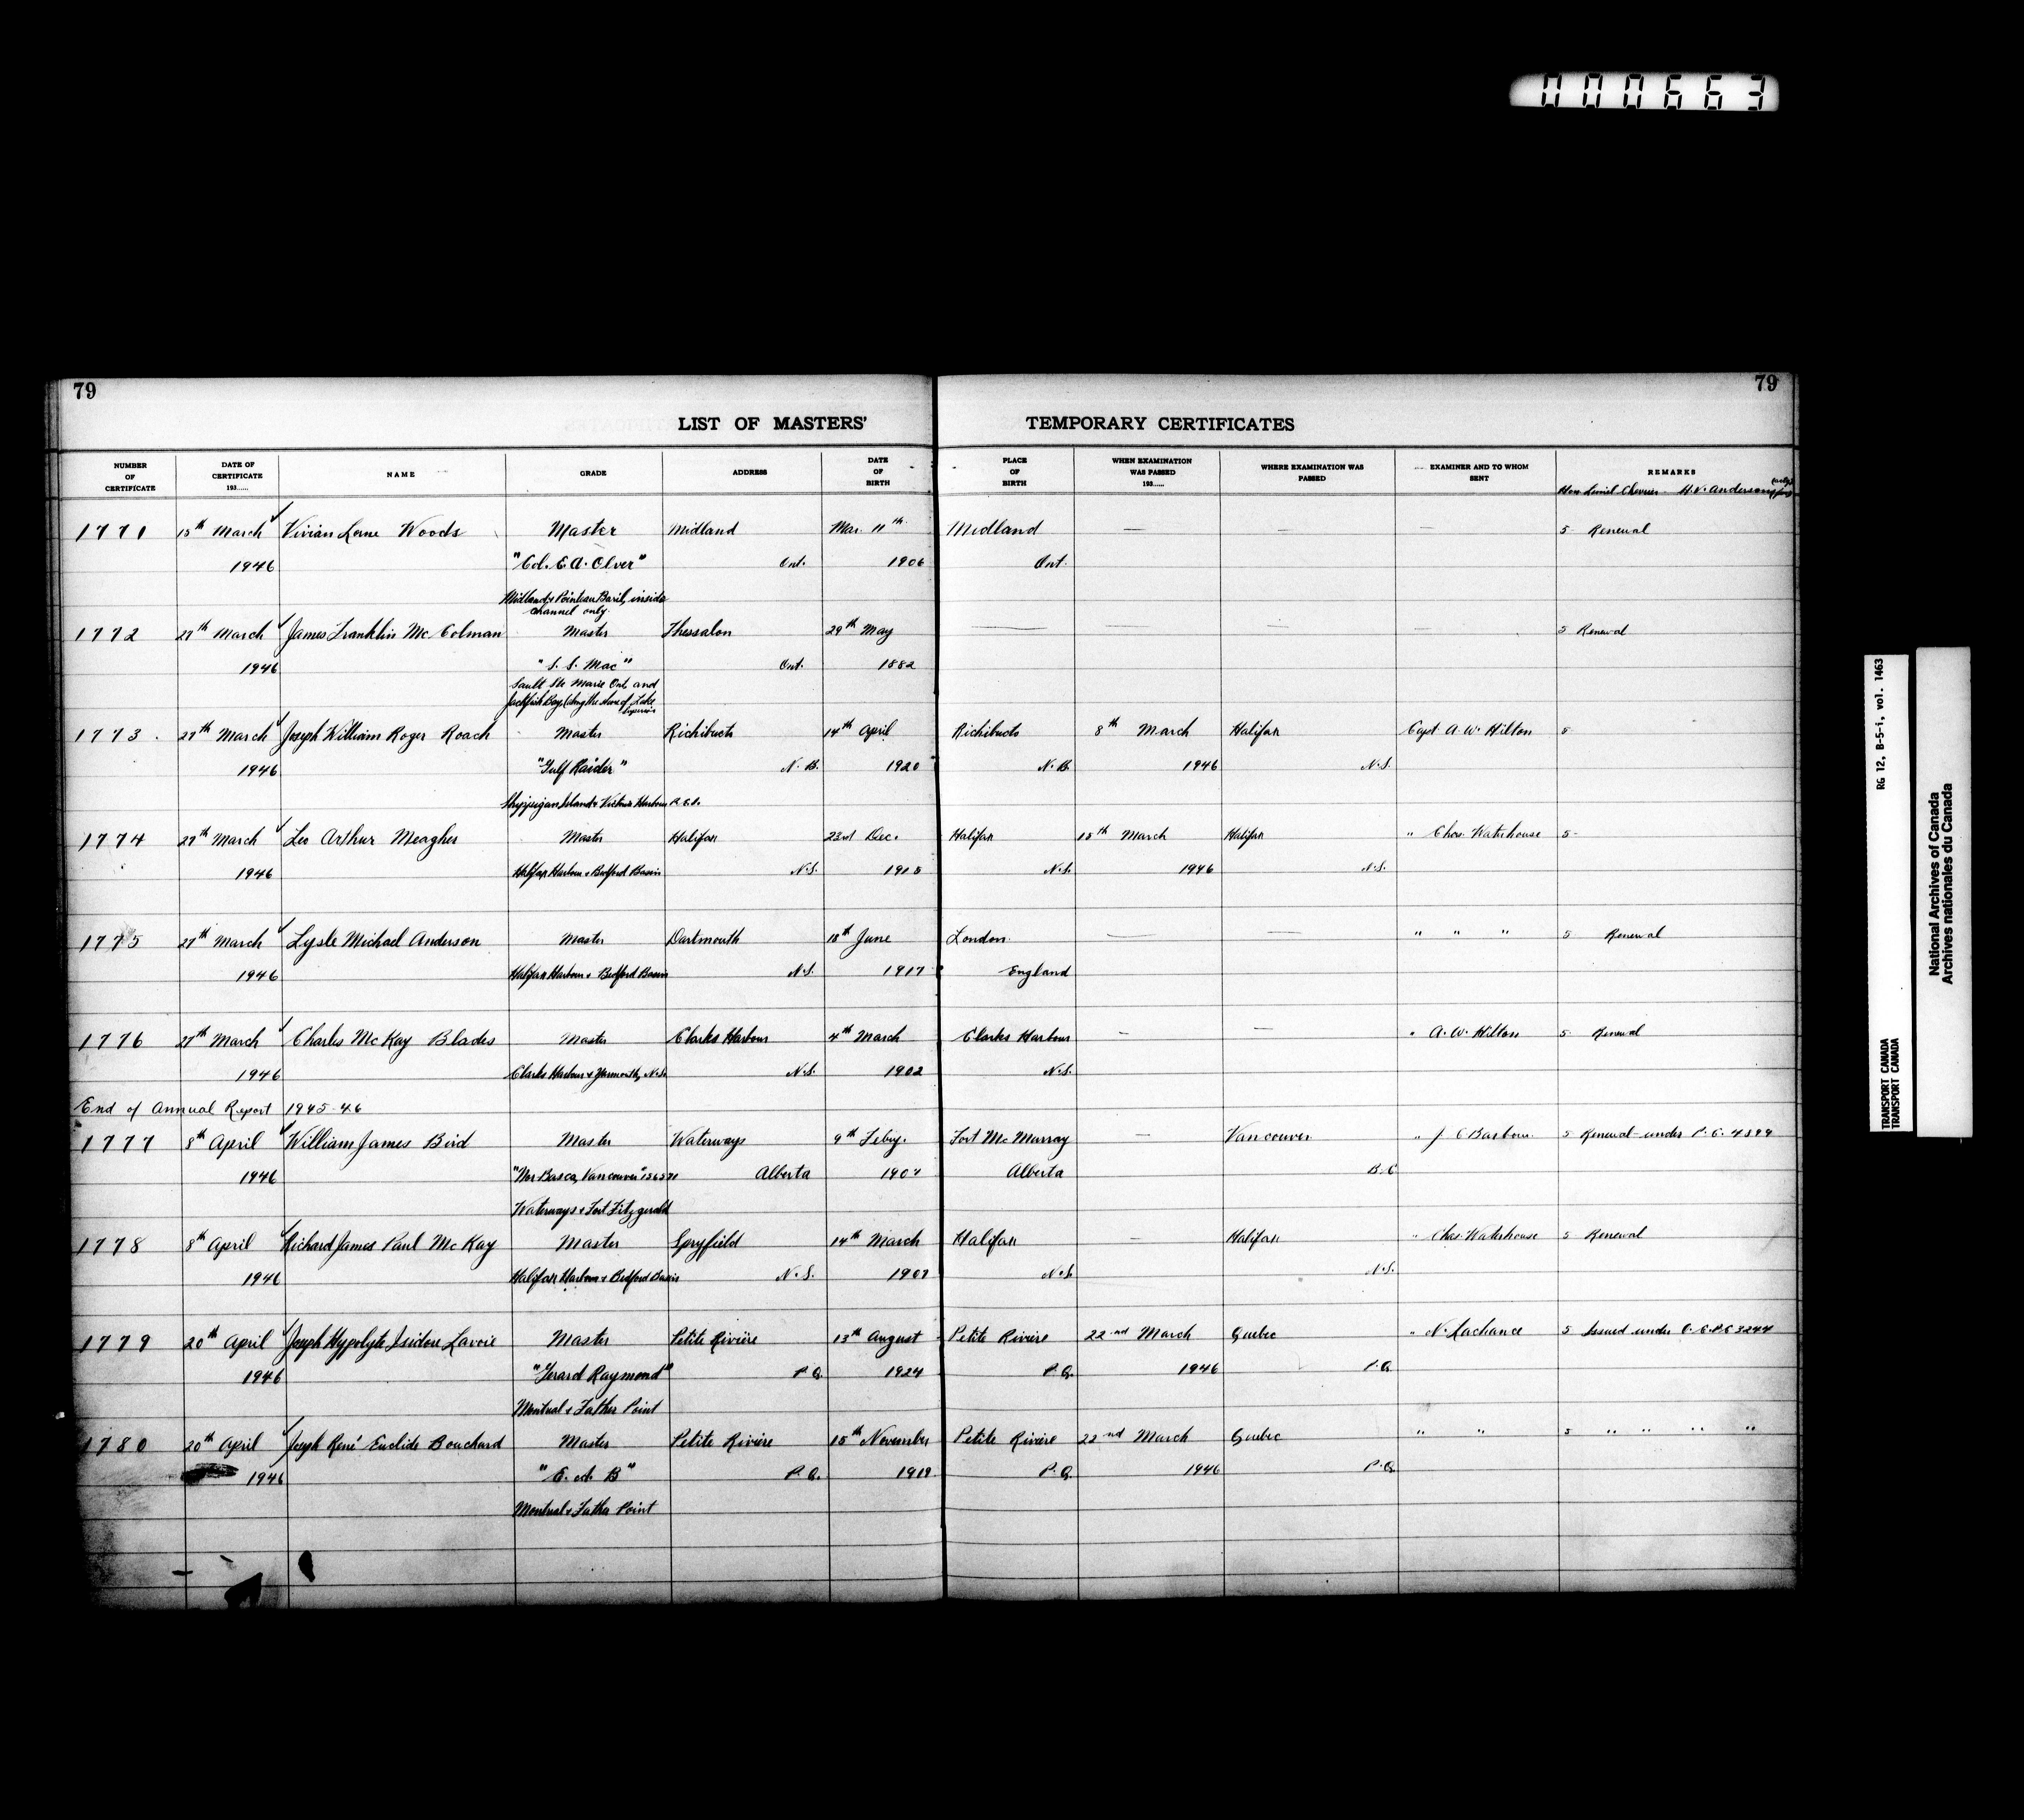 000663
79
79
LIST OF MASTERS' TEMPORARY CERTIFICATES
NUMBER OF CERTIFICATE
DATE OF CERTIFICATE 193......
NAME
GRADE
ADDRESS
DATE OF BIRTH
PLACE OF BIRTH
WHEN EXAMINATION WAS PASSED 193......
WHERE EXAMINATION WAS PASSED
EXAMINER AND TO WHOM SENT
REMARKS
Hon Lionel Chevrier - H.V. Anderson
1771 15th March Vivian Lorne Woods Master Midland Mar. 11th Midland — — — 5 Renewal
1946 "Col. E.A. Olver" Ont. 1906 Ont.
Midland & Pointeau Baril, inside
channel only.
1772 27th March James Franklin McColman Master Thessalon 29th May — — — — 5 Renewal
1946 "S.S. Mac" Ont. 1882
Sault Ste Marie Ont. and
Jackfish Bay, (along the shore of Lake
Superior
1773. 27th March Joseph William Roger Roach Master Richibucto 14th April Richibucto 8th March Halifax Capt A.W. Hilton 5
1946 "Gulf Raider" N.B. 1920 N.B. 1946 N.S.
Shippigan Island & Victoria Harbour
1774 27th March Leo Arthur Meagher Master Halifax 23rd Dec. Halifax 15th March Halifax " Chas. Waterhouse 5-
1946 Halifax Harbour & Bedford Basin N.S. 1915 N.S. 1946 N.S.
1775 27th March Lysle Michael Anderson Master Dartmouth 18th June London — — " " " 5 Renewal
1946 Halifax Harbour & Bedford Basin N.S. 1917 England
1776 27th March Charles McKay Blades Master Clarks Harbour 4th March Clarks Harbour — — " A.W. Hilton 5 Renewal
1946 Clarks Harbour & Yarmouth, N.S. N.S. 1902 N.S.
End of Annual Report 1945-46
1777 8th April William James Bird Master Waterways 9th Feby. Fort McMurray — Vancouver " J C Barbour 5 Renewal under P.C. 4899
1946 Basca, Vancouver" Alberta Alberta B.C
Waterways & Fort Fitzgerald
1778 8th April Richard James Paul McKay Master Spryfield 14th March Halifax — Halifax " Chas. Waterhouse 5 Renewal
1946 Halifax Harbour & Bedford Basin N.S. 1907 N.S. N.S.
1779 20th April Joseph Hypolyte Isidore Lavoie Master Petite Rivière 13th August Petite Riviere 22nd March Quebec " N. Lachance 5 Issued under 3244
1946 "Gerard Raymond" P.Q. 1924 P.Q. 1946 P.Q
Montreal & Father Point
1780 20th April Joseph René Euclide Bouchard Master Petite Rivière 15th November Petite Rivière 22nd March Quebec " " 5 " " " "
1946 "E. A. B" P.Q. 1919 P.Q. 1946 P.Q
Montreal & Father Point
RG 12, B-5-i, vol. 1463
TRANSPORT CANADA
TRANSPORT CANADA
National Archives of Canada
Archives nationales du Canada